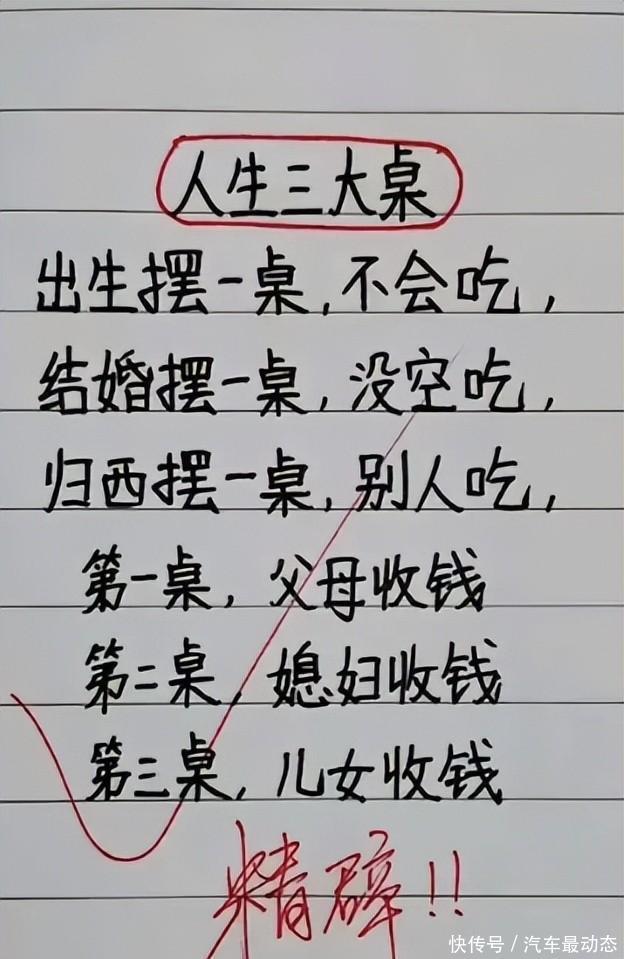 人生三大桌
出生摆一桌,不会吃,
结婚摆一桌,没空吃,
归西摆一桌,别人吃,
第一桌,父母收钱
第二桌,媳妇收钱
第三桌,儿女收钱
精辟!!
快传号/汽车最动态